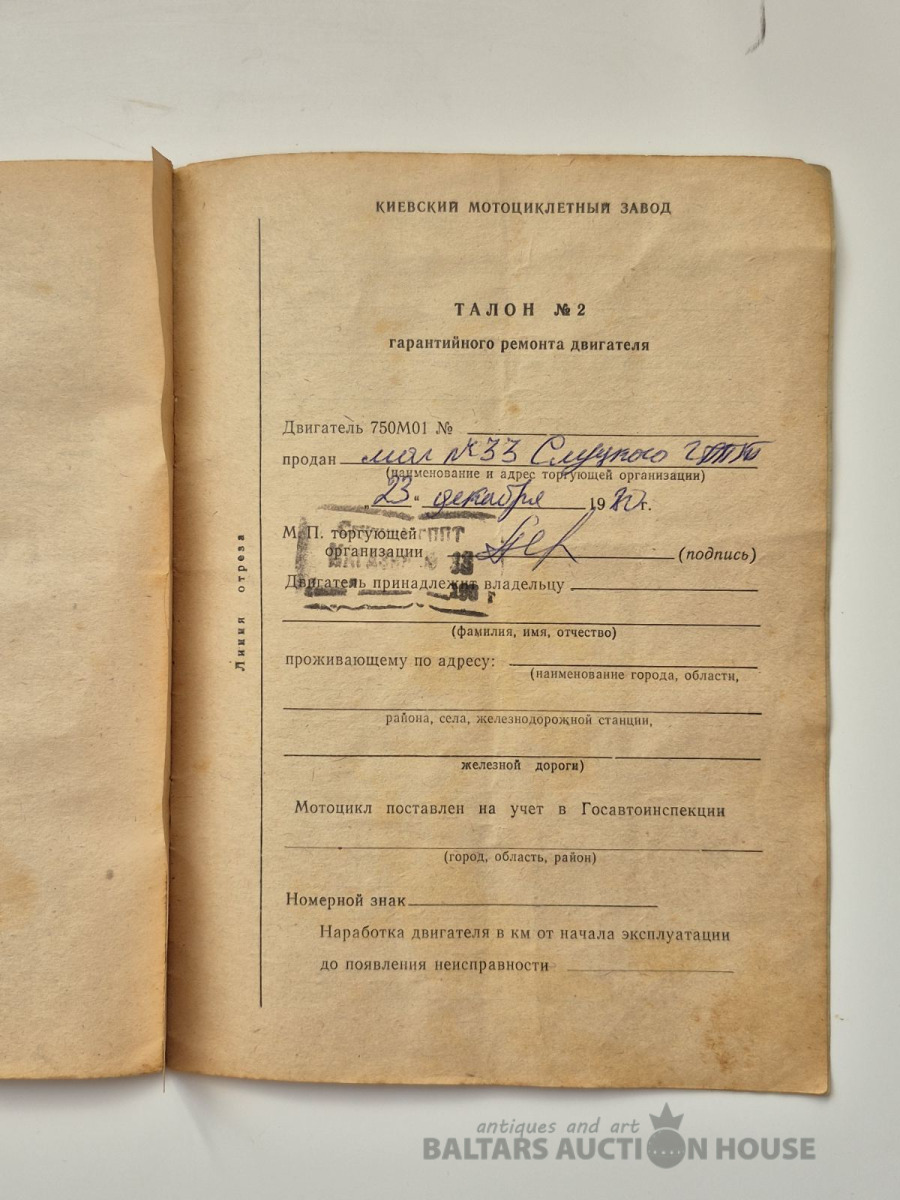 КИЕВСКИЙ МОТОЦИКЛЕТНЫЙ ЗАВОД
ТАЛОН №2
гарантийного ремонта двигателя
Двигатель 750М01 №
продан маг №33 Слуцкого
(наименование и адрес торгующей организации)
„23“ декабря 19 г.
М. П. торгующей
организации (подпись)
ППТ
Двигатель принадлежит владельцу
(фамилия, имя, отчество)
проживающему по адресу:
(наименование города, области,
района, села, железнодорожной станции,
железной дороги)
Мотоцикл поставлен на учет в Госавтоинспекции
(город, область, район)
Номерной знак
Наработка двигателя в км от начала эксплуатации
до появления неисправности
Линия отреза
antiques and art
BALTARS AUCTION HOUSE